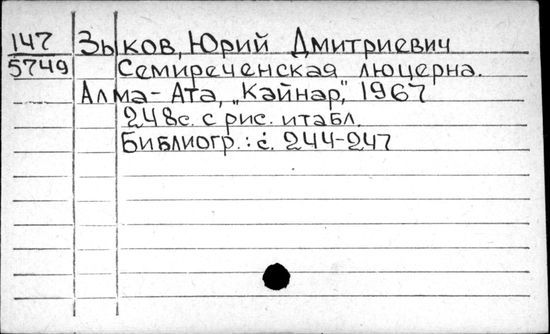 147 Зыков, Юрий Дмитриевич
5749 Семиреченская люцерна.
Алма-Ата, „Кайнар", 1967
248с. с рис. и табл.
Библиогр.: с. 244-247